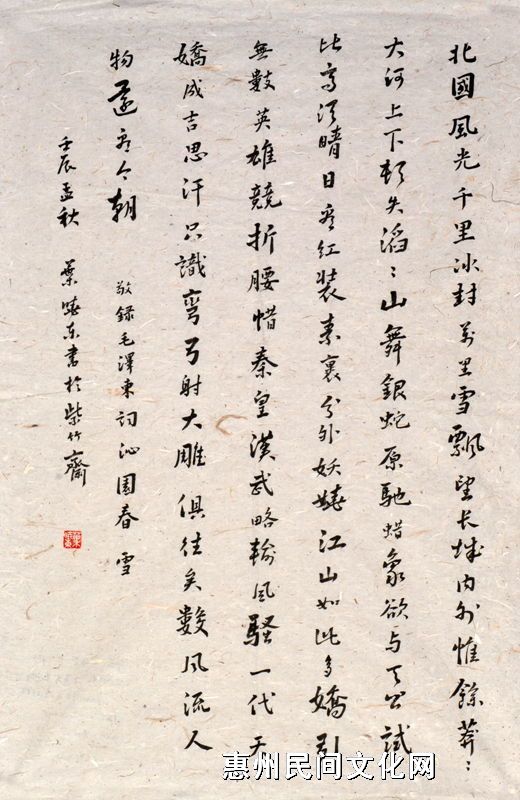 北國風光千里冰封萬里雪飄望長城內外惟餘莽〻
大河上下頓失滔〻山舞銀蛇原馳蜡象欲与天公試
比高須晴日看紅裝素裹分外妖嬈江山如此多嬌引
無數英雄競折腰惜秦皇漢武略輸風騷一代天
嬌成吉思汗只識彎弓射大雕俱往矣數風流人
物還看今朝
敬錄毛澤東詞沁園春 雪
壬辰孟秋 葉東書於紫竹齋
惠州民间文化网